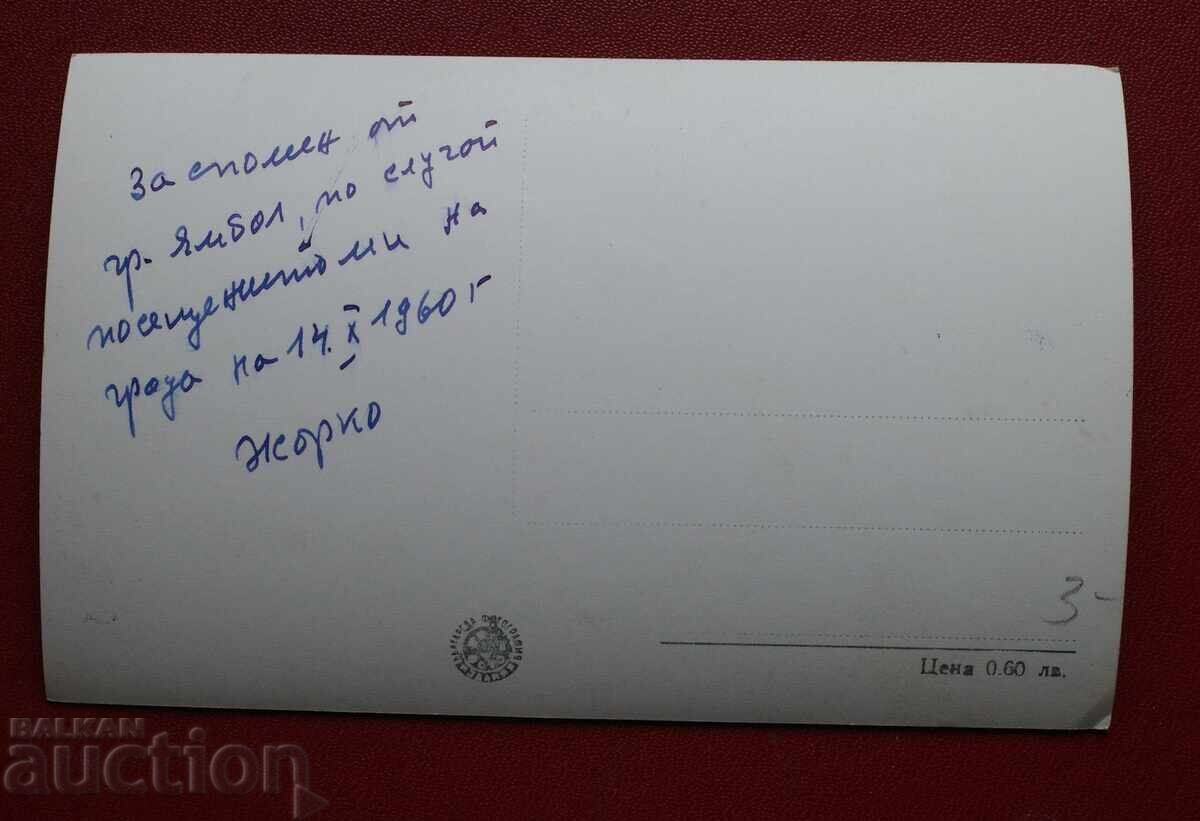 За спомен от
гр. Ямбол, по случай
посещението ми на
града на 14. X 1960 г
Жорко
3-
Цена 0.60 лв.
BALKAN
auction